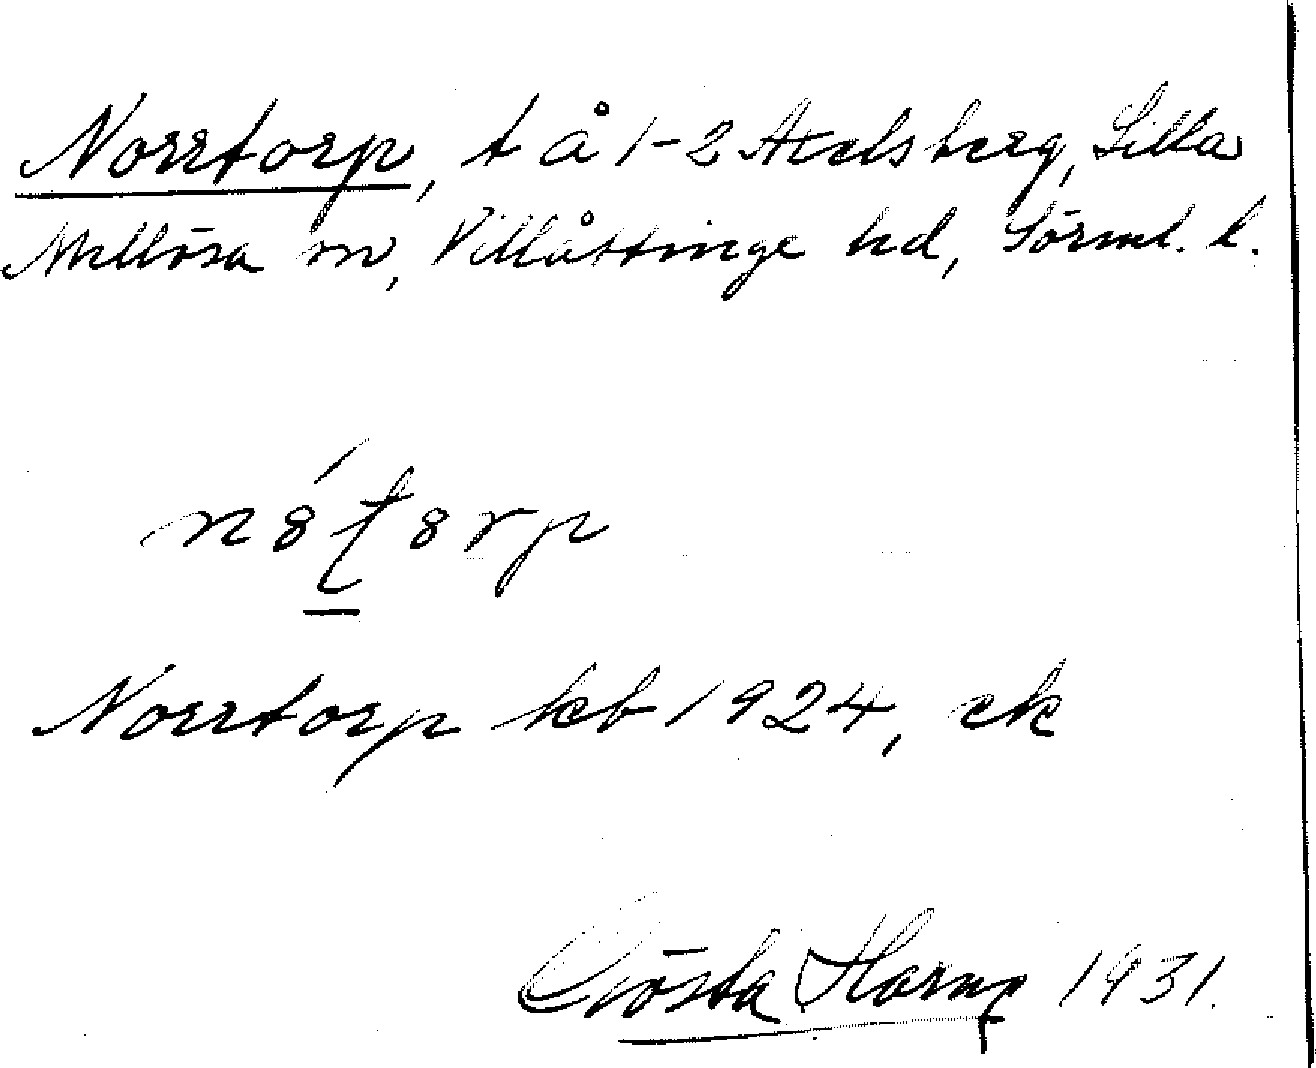 Norrtorp, t å 1-2 Axelsberg, Lilla
Mellösa sn, Villåttinge hd, Sörml. l.
Norrtorp kb 1924, ek
Gösta 1931.